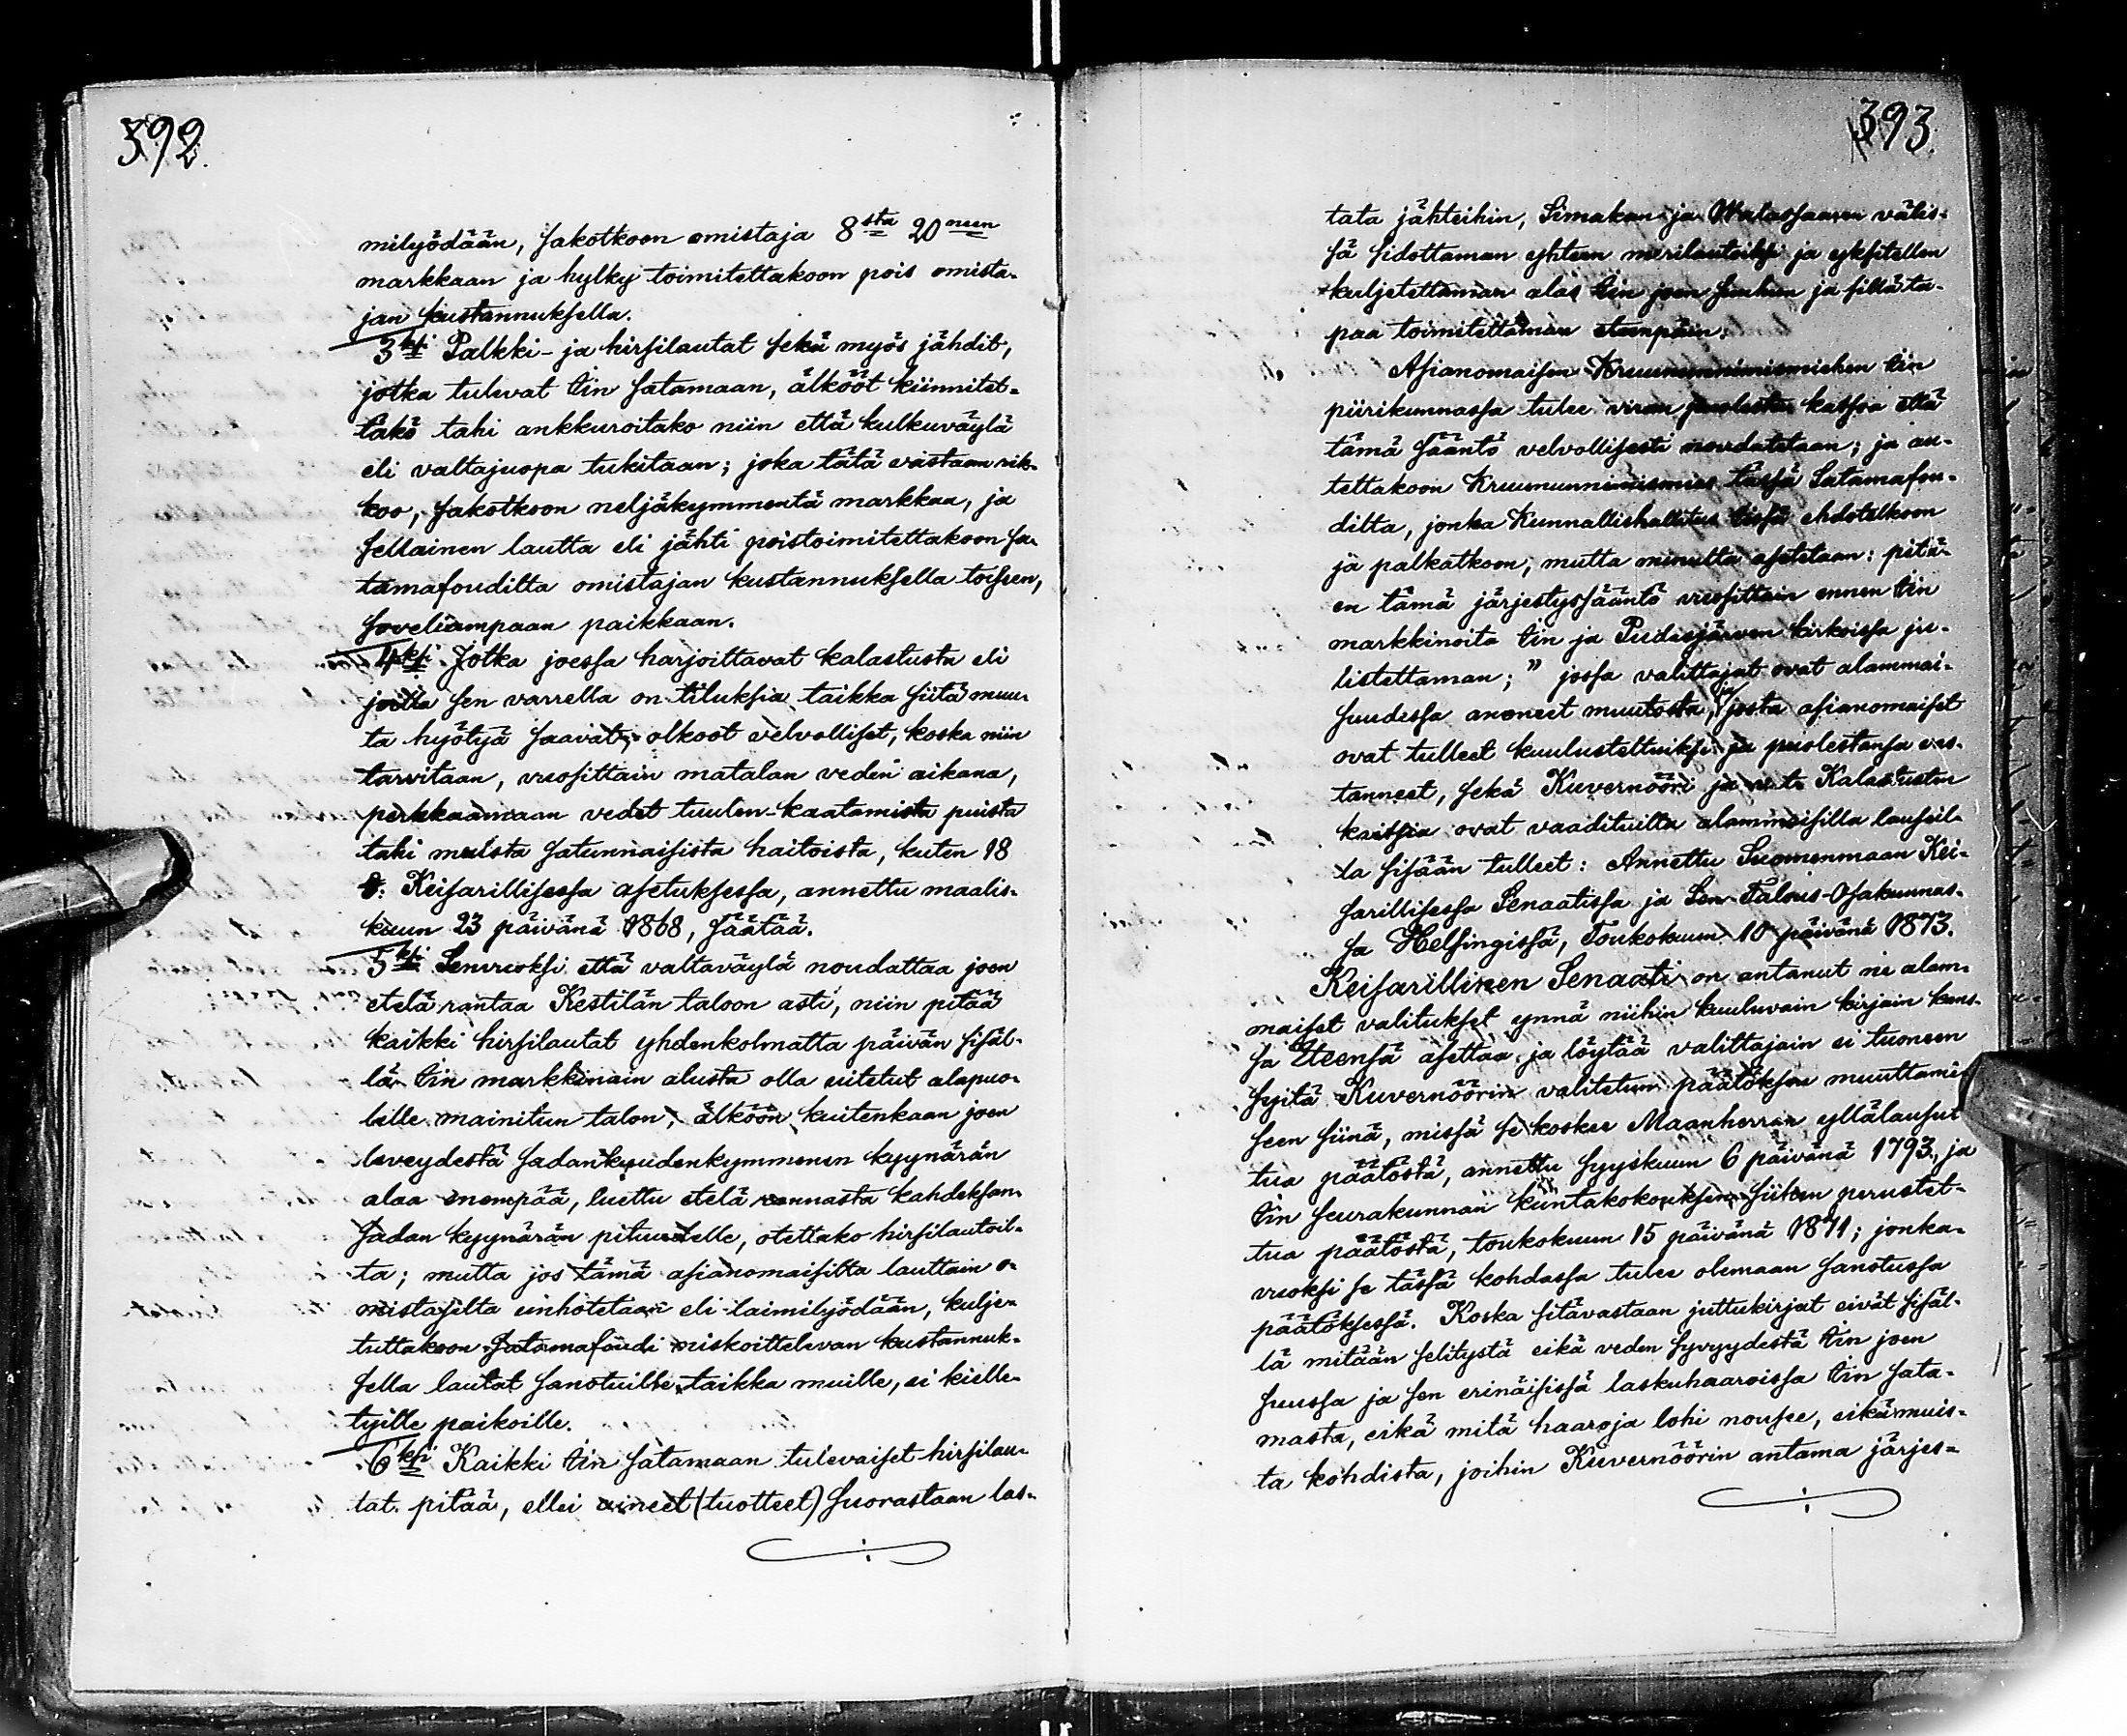 392.
milyödään, sakotkoon omistaja 8sta 20neen
markkaan ja hylky toimitettakoon pois omista-
jan kustannuksella.
3ksi Palkki- ja hirsilautat sekä myös jähdit,
jotka tulevat Iin satamaan, älkööt kiinnitet-
täkö tahi ankkuroitako niin että kulkuväylä
eli valtajuopa tukitaan; joka tätä vastaan rik-
koo, sakotkoon neljäkymmentä markkaa, ja
sellainen lautta eli jähti poistoimitettakoon sa-
tamafouditta omistajan kustannuksella toiseen,
soveliampaan paikkaan.
4ksi Jotka joessa harjoittavat kalastusta eli
joilla sen varrella on tiluksia taikka siitä muu-
ta hyötyä saavat, olkoot velvolliset, koska niin
tarvitaan, vuosittain matalan veden aikana,
perkkaamaan vedet tuulen-kaatamista puista
tahi muista satunnaisista haitoista, kuten 18
§: Keisarillisessa asetuksessa, annettu maalis-
kuun 23 päivänä 1868, säätää.
5ksi Senvuoksi että valtaväylä noudattaa joen
etelä rantaa Kestilän taloon asti, niin pitää
kaikki hirsilautat yhdenkolmatta päivän sisäl-
lä Iin markkinain alusta olla uitetut alapuo-
lelle mainitun talon, älköön kuitenkaan joen
leveydestä sadankuudenkymmenen kyynärän
alaa enempää, luettu etelä rannasta kahdeksan-
sadan kyynärän pituudelle, otettako hirsilautoil-
ta; mutta jos tämä asianomaisilta lauttain o-
mistajilta unhotetaan eli laimilyödään, kulje-
tuttakoon Satamafoudi niskoittelevan kustannuk-
sella lautat sanotuille taikka muille, ei kielle-
tyille paikoille.
6ksi Kaikki Iin satamaan tulevaiset hirsilau-
tat pitää, ellei aineet (tuotteet) suorastaan las-
393.
tata jähteihin, Simakan ja Watassaaren välis-
sä sidottaman yhteen merilautoiksi ja yksitellen
kuljetettaman alas Iin joen suuhun ja sillä ta-
paa toimitettaman eteenpäin.
Asianomaisen Kruununnimismiehen Iin
piirikunnassa tulee viran puolestan katsoa että
tämä sääntö velvollisesti noudatetaan; ja au-
tettakoon Kruununnimismies tässä Satamafou-
dilta, jonka Kunnallishallitus Iissä ehdotelkoon
ja palkatkoon, mutta minulta asetetaan: pitä-
en tämä järjestyssääntö vuosittain ennen Iin
markkinoita Iin ja Pudasjärven kirkoissa ju-
listettaman;" jossa valittajat ovat alammai-
suudessa anoneet muutosta, ja josta asianomaiset
ovat tulleet kuulusteltuiksi ja puolestansa vas-
tanneet, sekä Kuvernööri ja v. t. Kalastusten
katsia ovat vaadituilta alammaisilla lauseil-
la sisään tulleet: Annettu Suomenmaan Kei-
sarillisessa Senaatissa ja Sen Talous-Osakunnas-
sa Helsingissä, Toukokuun 10 päivänä 1873.
Keisarillinen Senaati on antanut ne alam-
maiset valitukset ynnä niihin kuuluvain kirjain kans-
sa Eteensä asettaa, ja löytää valittajain ei tuoneen
syitä Kuvernöörin valitetun päätöksen muuttami-
seen siinä, missä se koskee Maanherran yllälausut-
tua päätöstä, annettu syyskuun 6 päivänä 1793, ja
Iin seurakunnan kuntakokouksen siihen perustet-
tua päätöstä, toukokuun 15 päivänä 1871; jonka-
vuoksi se tässä kohdassa tulee olemaan sanotussa
päätöksessä. Koska sitävastaan juttukirjat eivät sisäl-
lä mitään selitystä eikä veden syvyydestä Iin joen
suussa ja sen erinäisissä laskuhaaroissa Iin sata-
masta, eikä mitä haaroja lohi nousee, eikä muis-
ta kohdista, joihin Kuvernöörin antama järjes-